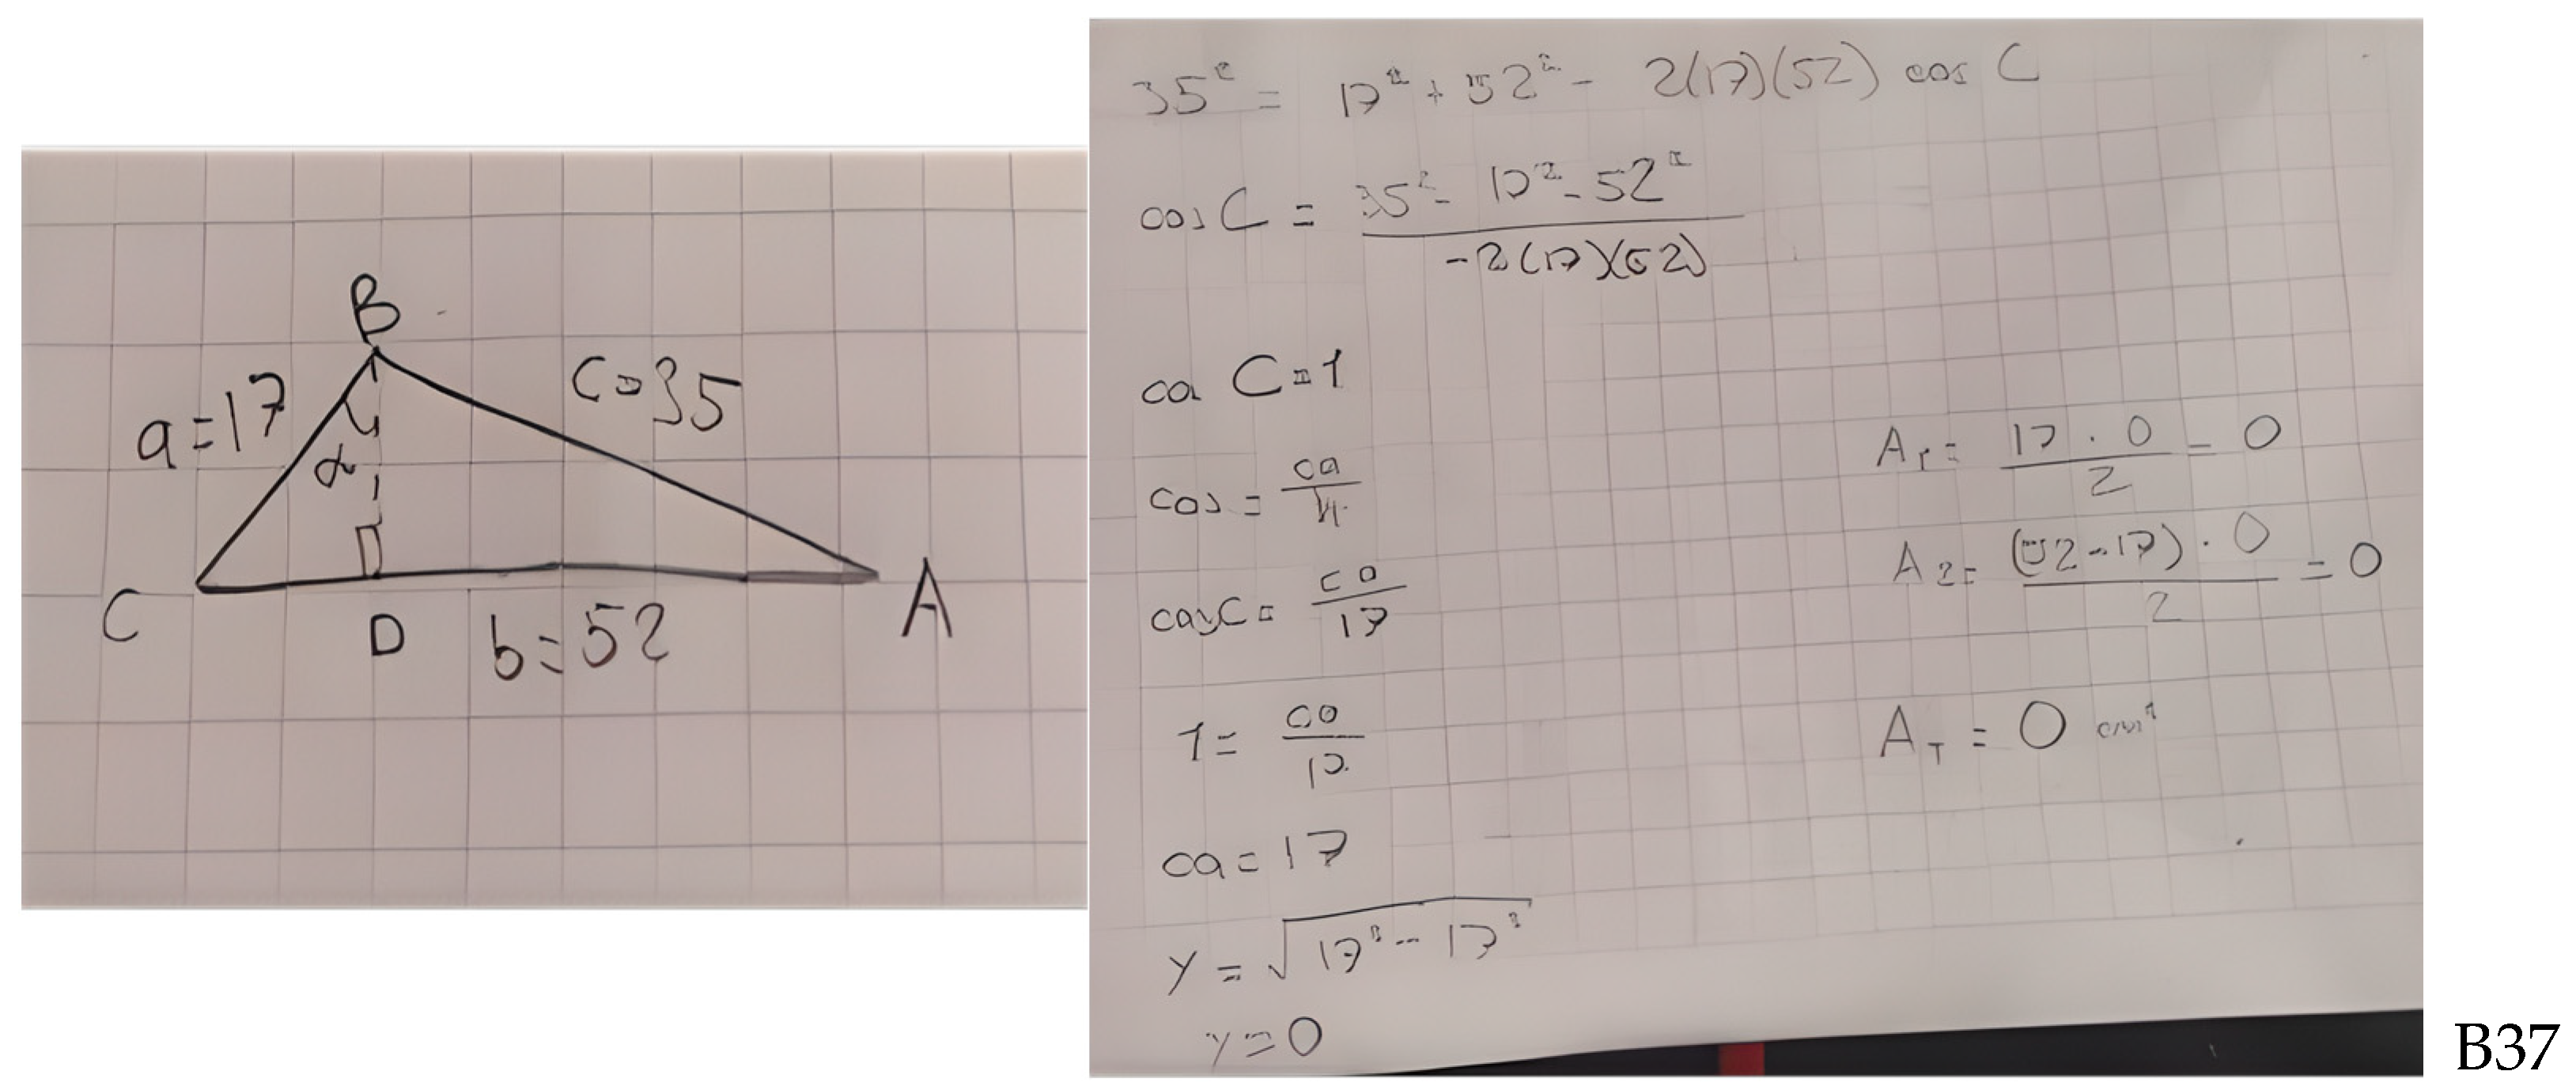 B
a=17
c=35
α
C
D
b=52
A
35² = 17² + 52² - 2(17)(52) cos C
cos C = 35² - 17² - 52² / -2(17)(52)
cos C = 1
cos = ca / H
cos C = ca / 17
1 = ca / 17
ca = 17
y = √17² - 17²
y = 0
A₁ = 17 · 0 / 2 = 0
A₂ = (52-17) · 0 / 2 = 0
A_T = 0 cm²
B37